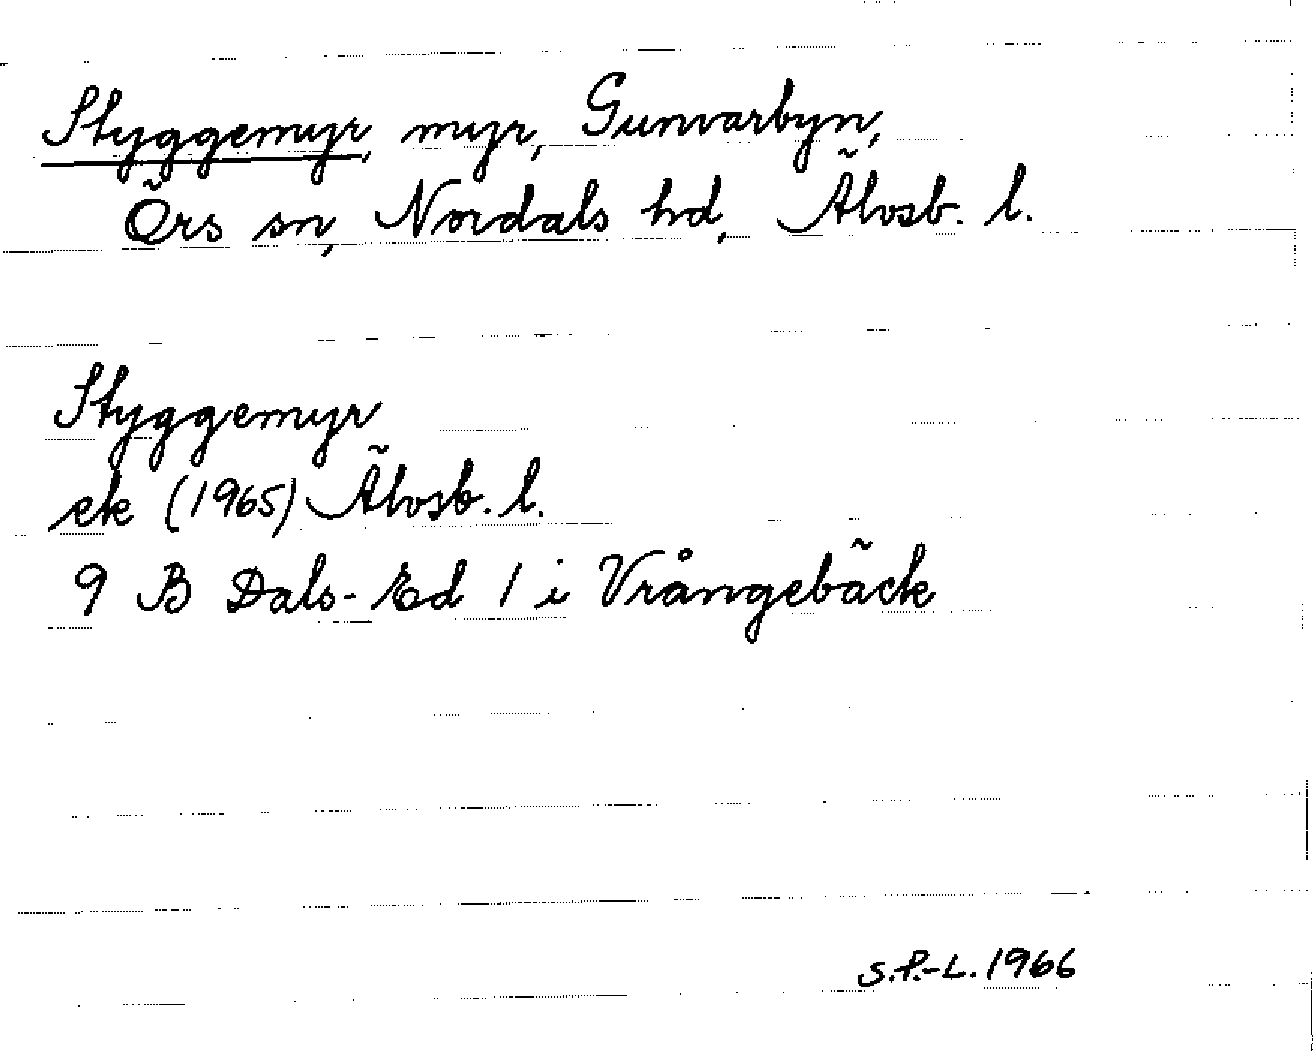 Styggemyr, myr, Gunvarbyn,
Örs sn, Nordals hd, Älvsb. l.
Styggemyr
ek (1965) Älvsb. l.
9 B Dals-Ed 1 i Vrångebäck
S.P.-L. 1966